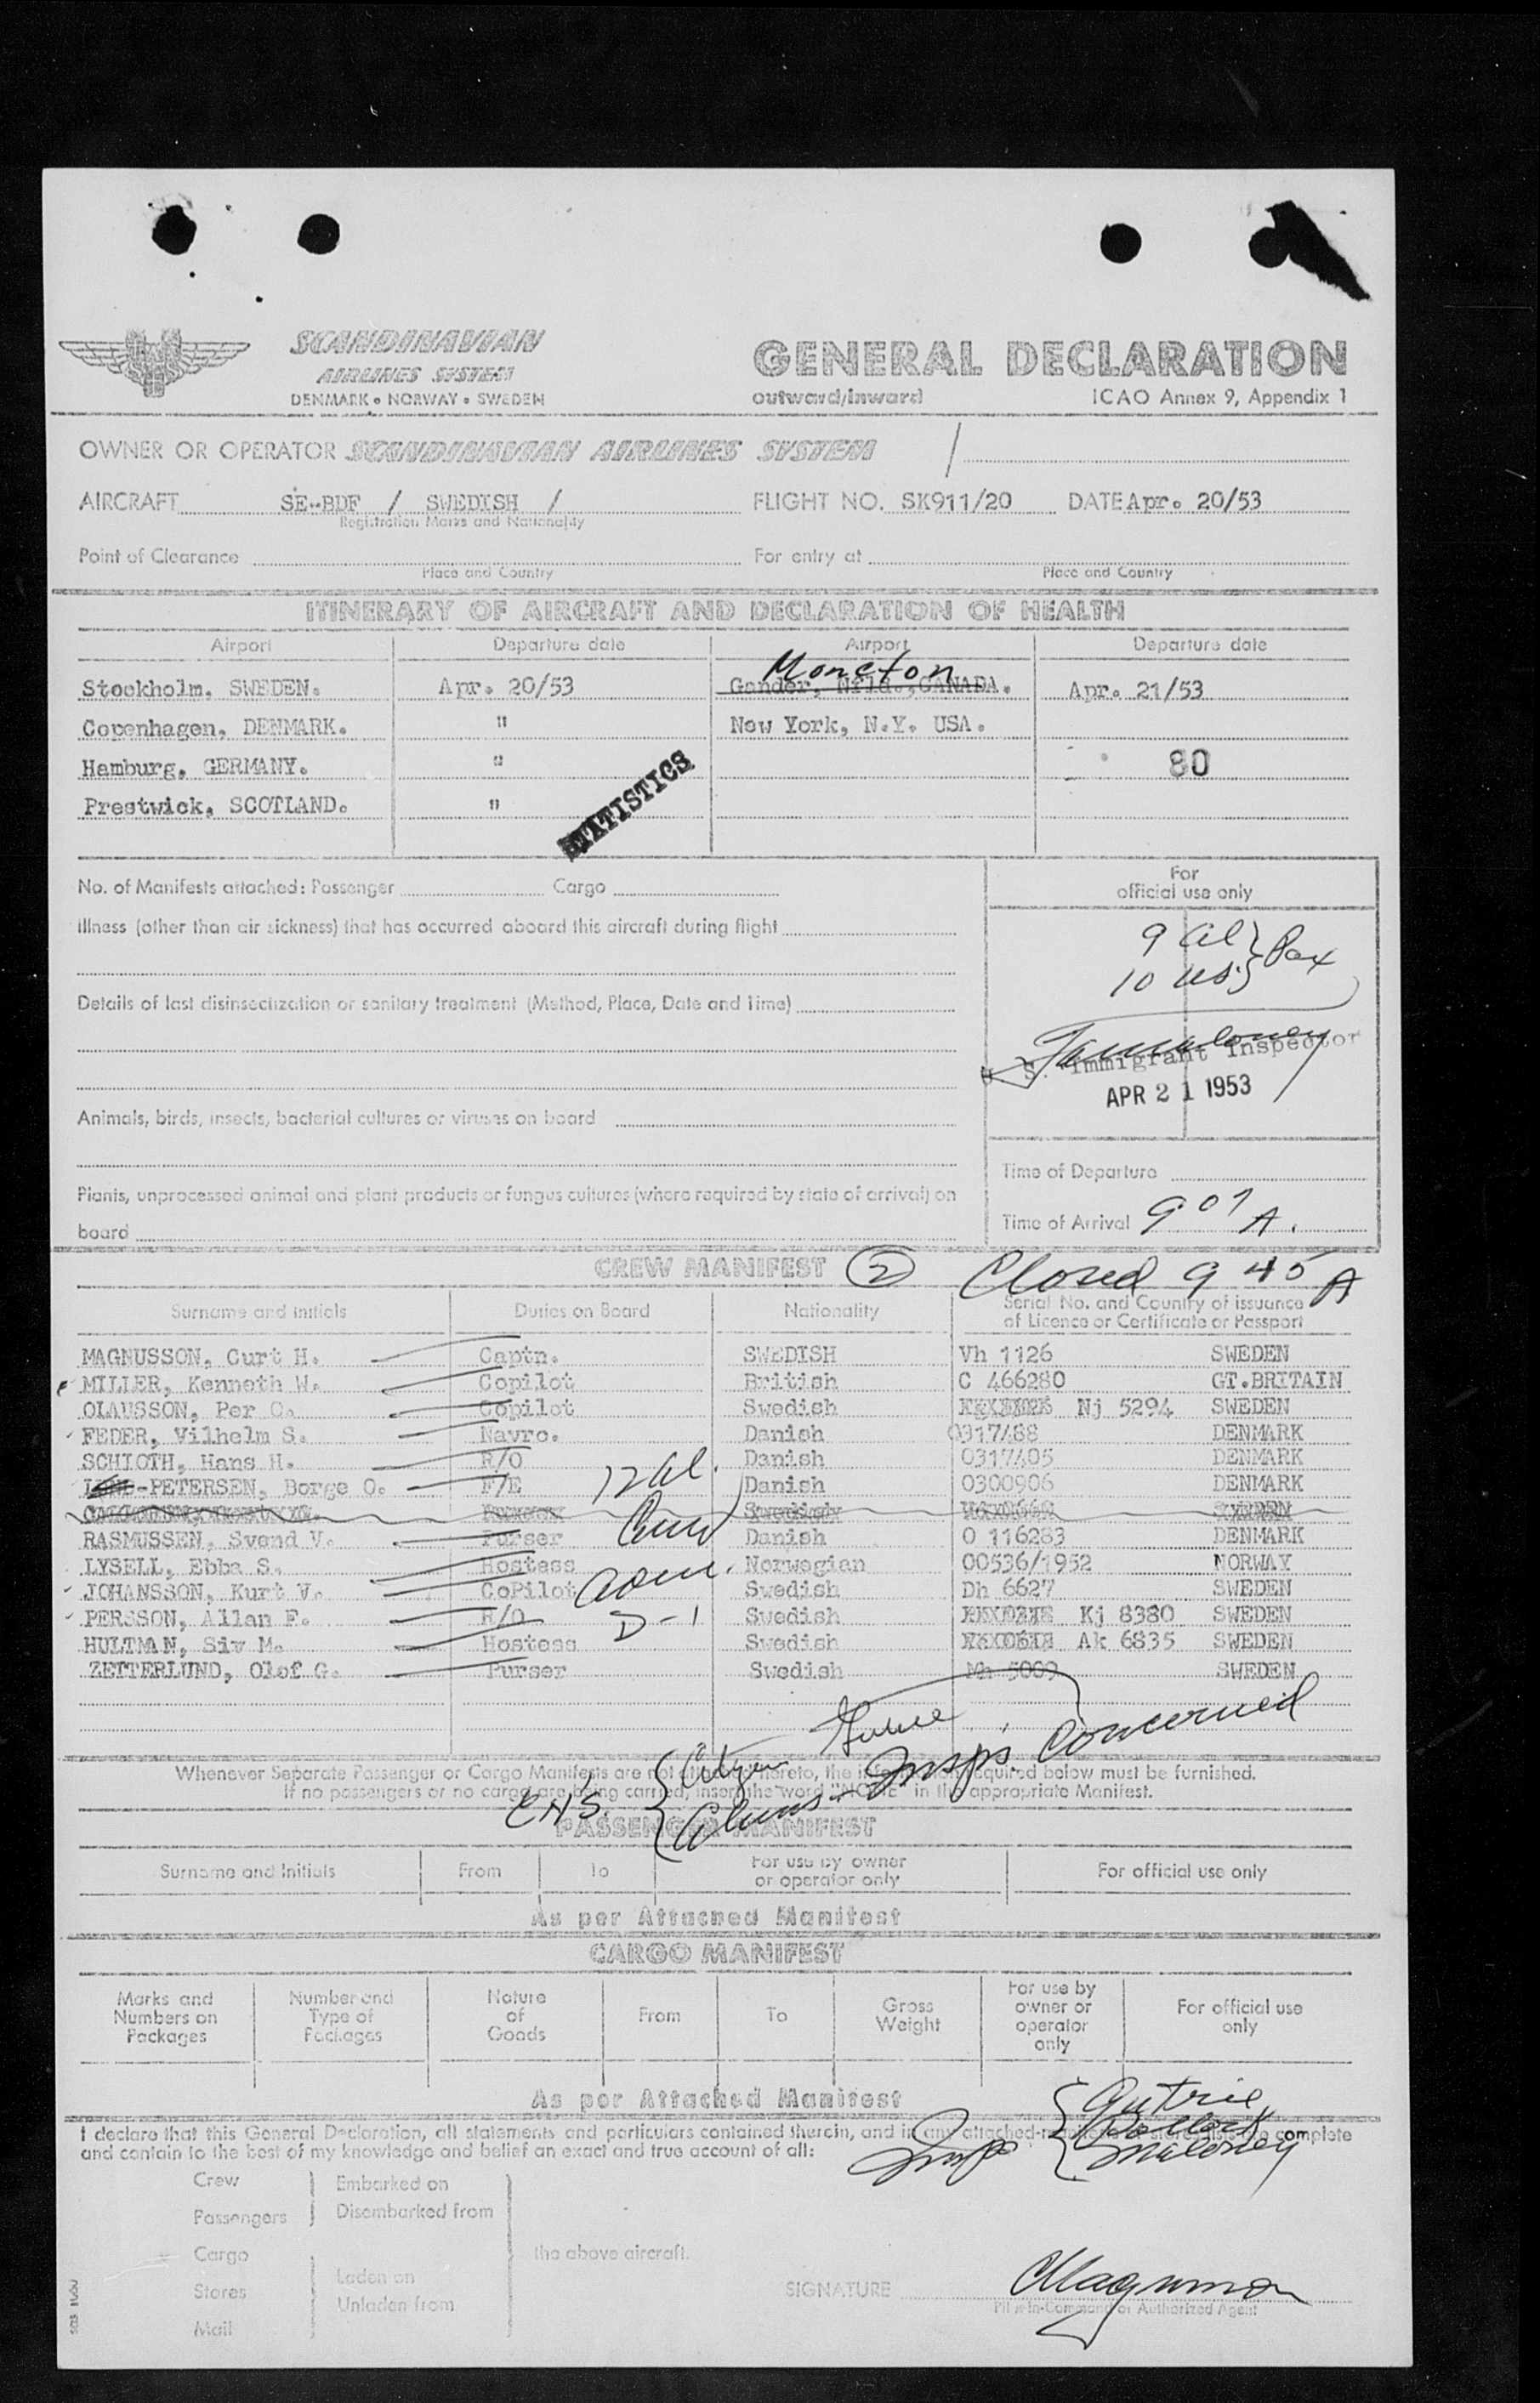 SCANDINAVIAN
AIRLINES SYSTEM
DENMARK • NORWAY • SWEDEN
GENERAL DECLARATION
outward/inward ICAO Annex 9, Appendix 1
OWNER OR OPERATOR SCANDINAVIAN AIRLINES SYSTEM /
AIRCRAFT SE-BDF / SWEDISH / FLIGHT NO. SK911/20 DATE Apr. 20/53
Registration Marks and Nationality
Point of Clearance For entry at
Place and Country Place and Country
ITINERARY OF AIRCRAFT AND DECLARATION OF HEALTH
Airport Departure date Airport Departure date
Moncton
Stockholm, SWEDEN. Apr. 20/53 Gander, Nfld., CANADA. Apr. 21/53
Copenhagen, DENMARK. " New York, N.Y. USA.
Hamburg, GERMANY. " 80
Prestwick, SCOTLAND. "
STATISTICS
No. of Manifests attached: Passenger Cargo
For
official use only
Illness (other than air sickness) that has occurred aboard this aircraft during flight
9 al } Pax
10 US }
Details of last disinsectization or sanitary treatment (Method, Place, Date and Time)
S. Immigrant Inspector
APR 21 1953
Animals, birds, insects, bacterial cultures or viruses on board
Time of Departure
Plants, unprocessed animal and plant products or fungus cultures (where required by state of arrival) on
board
Time of Arrival 9 07 A.
CREW MANIFEST 2 Closed 9 45 A
Surname and initials Duties on Board Nationality Serial No. and Country of issuance
of Licence or Certificate or Passport
MAGNUSSON, Curt H. Captn. SWEDISH Vh 1126 SWEDEN
MILLER, Kenneth W. Copilot British C 466280 GT.BRITAIN
OLAUSSON, Per O. Copilot Swedish Nj 5294 SWEDEN
FEDER, Vilhelm S. Navro. Danish 0317488 DENMARK
SCHIOTH, Hans H. R/O Danish 0317405 DENMARK
-PETERSEN, Borge O. F/E Danish 0300906 DENMARK
12 al.
Swedish SWEDEN
RASMUSSEN, Svend V. Purser Danish O 116283 DENMARK
Crew
LYSELL, Ebba S. Hostess Norwegian 00536/1952 NORWAY
JOHANSSON, Kurt V. CoPilot Swedish Dh 6627 SWEDEN
adm.
PERSSON, Allan F. R/O Swedish Kj 8380 SWEDEN
D-1
HULTMAN, Siv M. Hostess Swedish Ak 6835 SWEDEN
ZETTERLUND, Olof G. Purser Swedish Mh 5009 SWEDEN
Insps Concerned
Whenever Separate Passenger or Cargo Manifests are not attached hereto, the information required below must be furnished.
If no passengers or no cargo are being carried, insert the word "NONE" in the appropriate Manifest.
PASSENGER MANIFEST
Surname and Initials From To For use by owner
or operator only For official use only
As per Attached Manifest
CARGO MANIFEST
Marks and
Numbers on
Packages Number and
Type of
Packages Nature
of
Goods From To Gross
Weight For use by
owner or
operator
only For official use
only
As per Attached Manifest
Insps { Gutrie
Maloney
I declare that this General Declaration, all statements and particulars contained therein, and in any attached complete
and contain to the best of my knowledge and belief an exact and true account of all:
Crew Embarked on
Passengers Disembarked from
Cargo the above aircraft.
Laden on
Stores
Unladen from
Mail
SIGNATURE CMagnusson
Pilot-in-Command or Authorized Agent